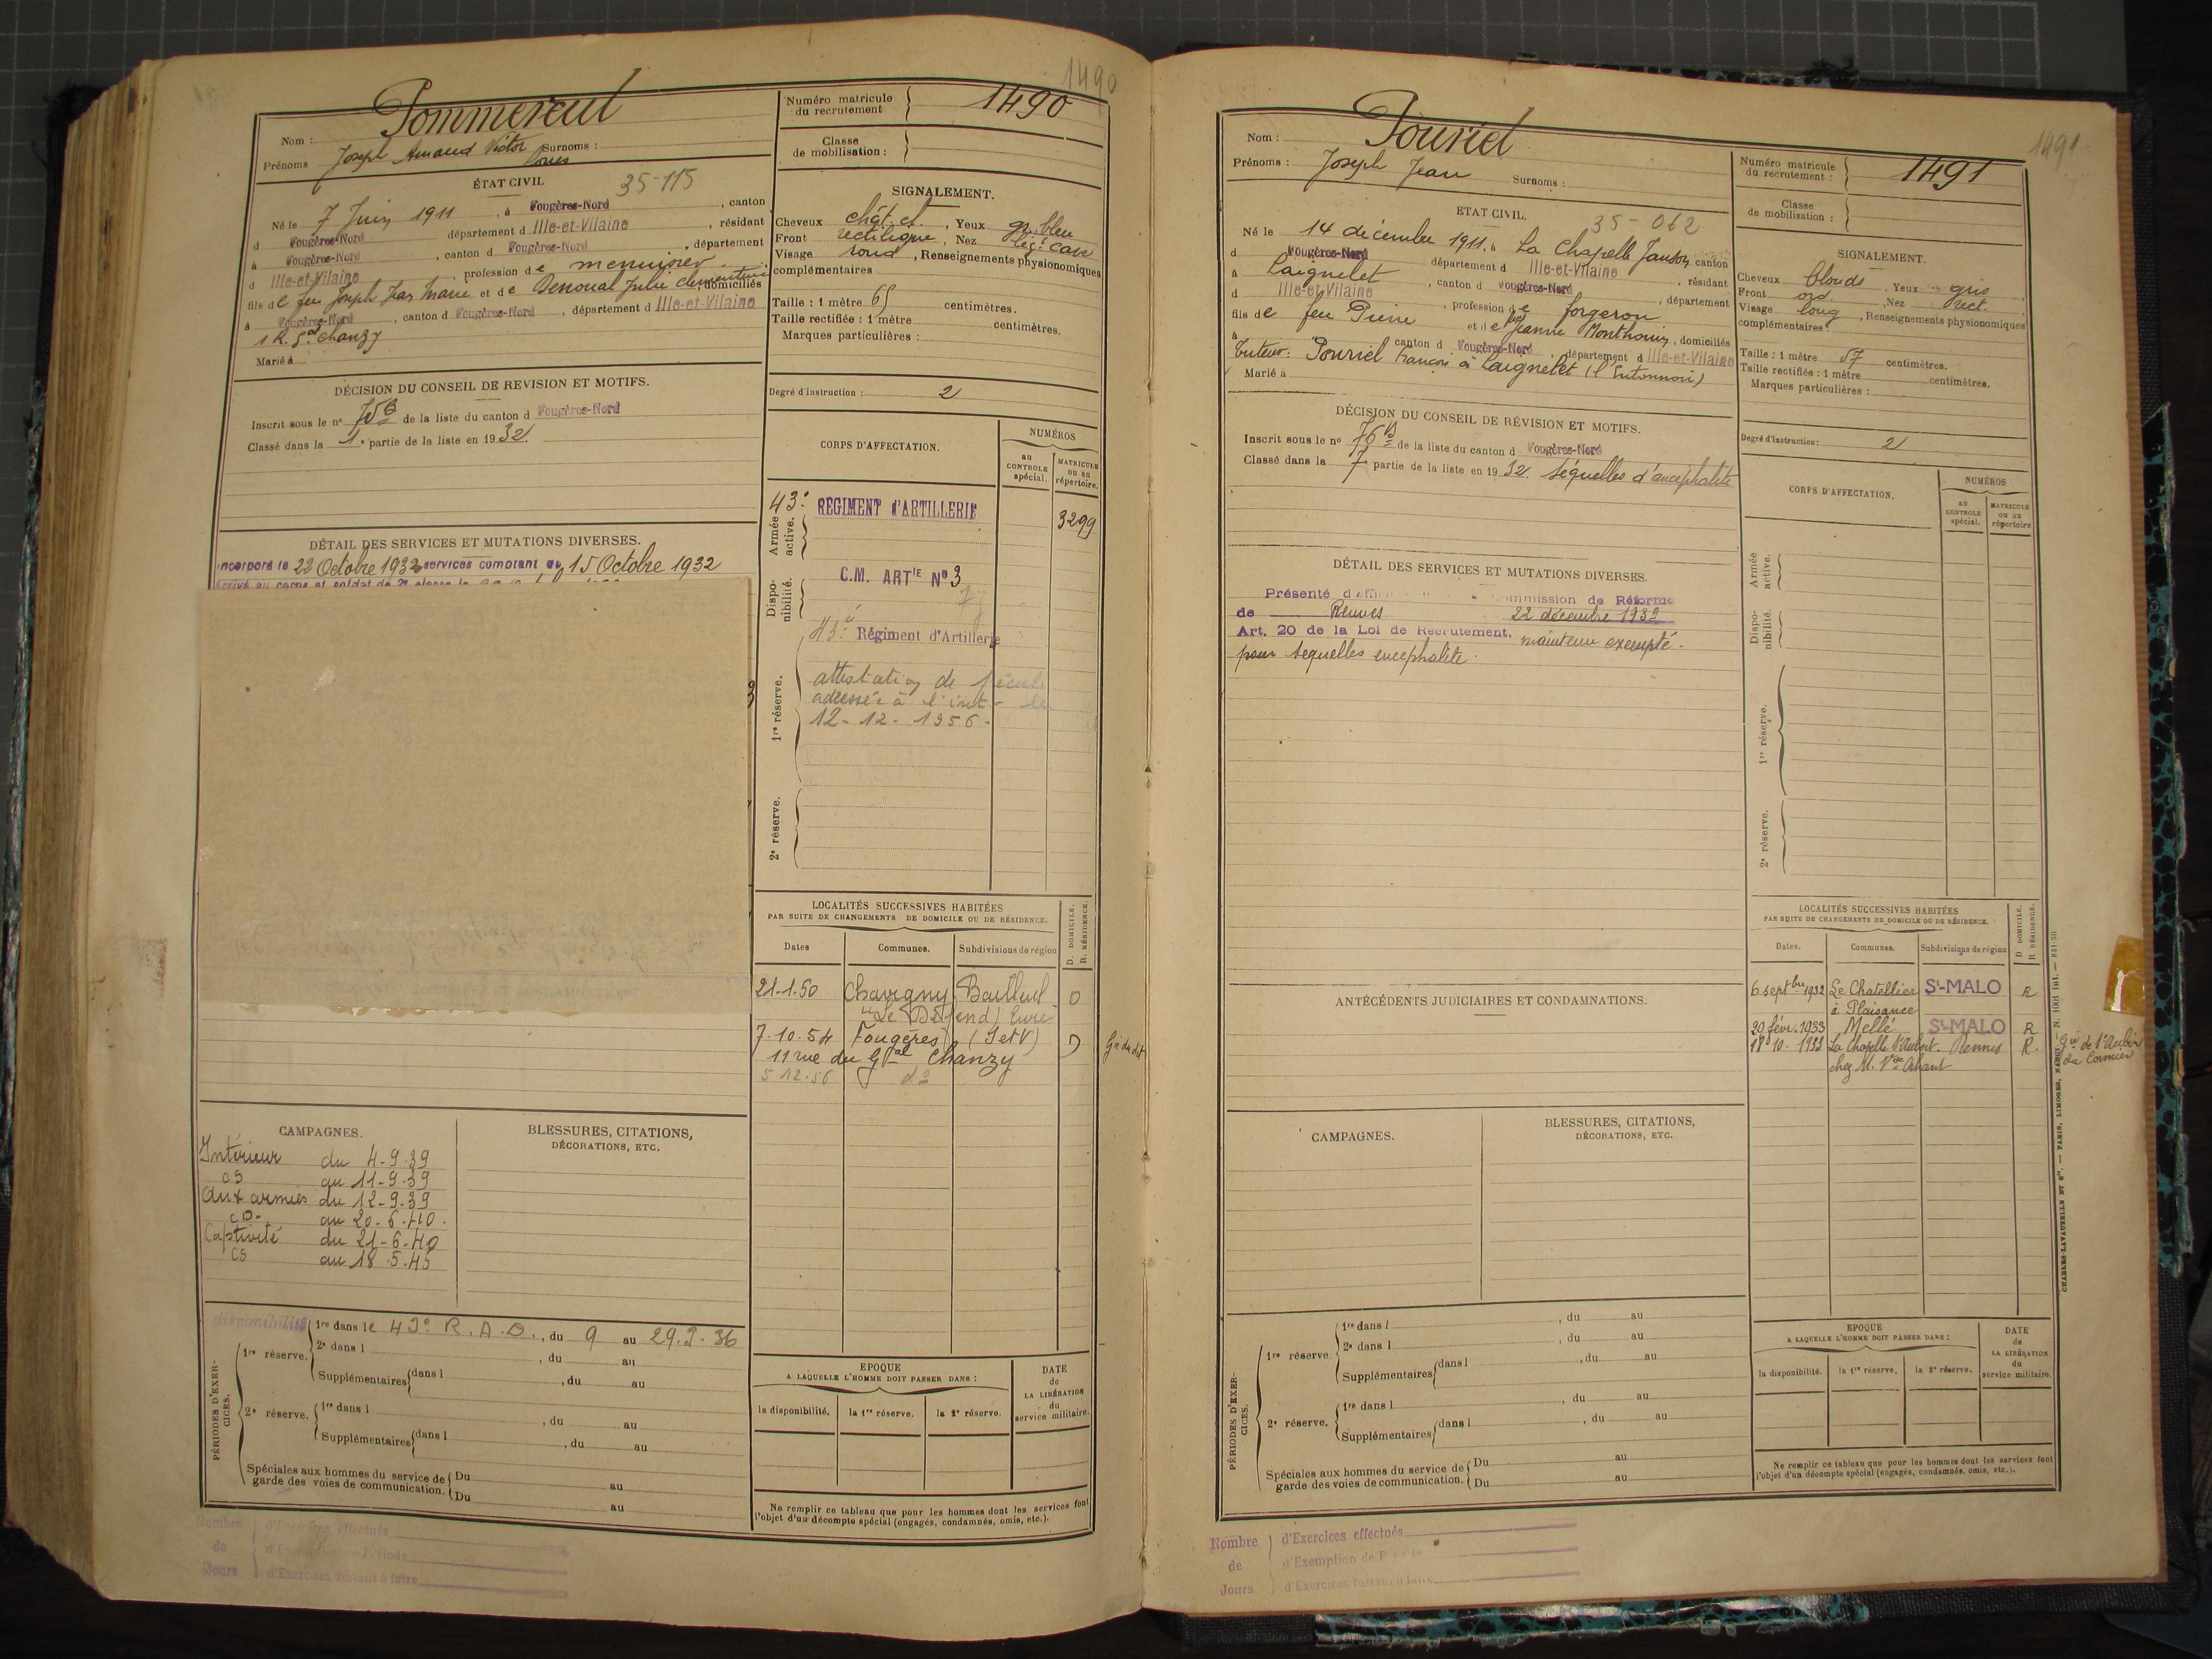 1490
Nom : Pommereul
Prénoms Joseph Amand Victor Surnoms :
Louis
ÉTAT CIVIL 35-115
Né le 7 Juin 1911, à Fougères-Nord, canton
d Fougères-Nord département d Ille-et-Vilaine, résidant
à Fougères-Nord, canton d Fougères-Nord, département
d Ille-et-Vilaine, profession de menuisier
fils de feu Joseph Jean Marie et de Denoual Julie Clémentine domiciliés
à Fougères-Nord, canton d Fougères-Nord, département d Ille-et-Vilaine
1 R. Gal Chanzy
Marié à
DÉCISION DU CONSEIL DE REVISION ET MOTIFS.
Inscrit sous le n° 75 B de la liste du canton d Fougères-Nord
Classé dans la 1e partie de la liste en 1932.
DÉTAIL DES SERVICES ET MUTATIONS DIVERSES.
Incorporé le 22 Octobre 1932 services comptant du 15 Octobre 1932
CAMPAGNES.
Intérieur du 4-9-39
CS au 11-9-39
aux armées du 12-9-39
CD. au 20-6-40.
Captivité du 21-6-40
CS au 18.5.45
BLESSURES, CITATIONS,
DÉCORATIONS, ETC.
PÉRIODES D'EXER-
CICES.
disponibilité
1re réserve. 1re dans le 43e R.A.D., du 9 au 29.9.36
2e dans l , du au
Supplémentaires dans l , du au
2e réserve. 1re dans l , du au
Supplémentaires dans l , du au
Spéciales aux hommes du service de Du au
garde des voies de communication. Du au
Nombre de Jours
d'Exercices effectués
d'Exemption de Période
d'Exercices restant à faire
Numéro matricule
du recrutement 1490
Classe
de mobilisation :
SIGNALEMENT.
Cheveux chât. cl., Yeux gr. bleu
Front rectiligne, Nez lég. cave
Visage rond, Renseignements physionomiques
complémentaires
Taille : 1 mètre 65 centimètres.
Taille rectifiée : 1 mètre centimètres.
Marques particulières :
Degré d'instruction : 2
CORPS D'AFFECTATION.
NUMÉROS
au
CONTROLE
spécial.
MATRICULE
ou au
répertoire.
Armée
active.
43e RÉGIMENT d'ARTILLERIE 3299
Dispo-
nibilité.
C.M. ARTIE N° 3
43e Régiment d'Artillerie
1re réserve.
attestation de pécule
adressée à l'int
12-12-1956-
2e réserve.
LOCALITÉS SUCCESSIVES HABITÉES
PAR SUITE DE CHANGEMENTS DE DOMICILE OU DE RÉSIDENCE.
D. DOMICILE.
R. RÉSIDENCE.
Dates Communes. Subdivisions de région
21-1-50 Chavigny Bailleul D
"Le Défend) Eure
7-10-54 Fougères (I et V) D
11 rue du Gral Chanzy
5 12-56 do
EPOQUE
A LAQUELLE L'HOMME DOIT PASSER DANS :
la disponibilité. la 1re réserve. la 2e réserve.
DATE
de
LA LIBÉRATION
du
service militaire.
Ne remplir ce tableau que pour les hommes dont les services font
l'objet d'un décompte spécial (engagés, condamnés, omis, etc.).
1491
Nom : Pouriel
Prénoms : Joseph Jean Surnoms :
ETAT CIVIL. 35-062
Né le 14 décembre 1911, à La Chapelle Janson, canton
d Fougères-Nord département d Ille-et-Vilaine, résidant
à Laignelet, canton d Fougères-Nord, département
d Ille-et-Vilaine, profession de forgeron
fils de feu Pierre et de feue Jeanne Monthouin, domiciliés
à canton d Fougères-Nord, département d Ille-et-Vilaine
Tuteur : Pouriel François à Laignelet (l'Entonnoir)
Marié à
DÉCISION DU CONSEIL DE RÉVISION ET MOTIFS.
Inscrit sous le n° 76 B de la liste du canton d Fougères-Nord
Classé dans la 7 partie de la liste en 1932. Séquelles d'encéphalite
DÉTAIL DES SERVICES ET MUTATIONS DIVERSES.
Présenté d'office Commission de Réforme
de Rennes 22 décembre 1932
Art. 20 de la Loi de Recrutement. maintenu exempté.
pour séquelles encephalite.
ANTÉCÉDENTS JUDICIAIRES ET CONDAMNATIONS.
CAMPAGNES.
BLESSURES, CITATIONS,
DÉCORATIONS, ETC.
PÉRIODES D'EXER-
CICES.
1re réserve. 1re dans l , du au
2e dans l , du au
Supplémentaires dans l , du au
2e réserve. 1re dans l , du au
Supplémentaires dans l , du au
Spéciales aux hommes du service de Du au
garde des voies de communication. Du au
Nombre de Jours
d'Exercices effectués
d'Exemption de
d'Exercices restant à faire
Numéro matricule
du recrutement : 1491
Classe
de mobilisation :
SIGNALEMENT.
Cheveux blonds, Yeux gris
Front ord, Nez rect.
Visage long, Renseignements physionomiques
complémentaires :
Taille : 1 mètre 57 centimètres.
Taille rectifiée : 1 mètre centimètres.
Marques particulières :
Degré d'instruction : 2
CORPS D'AFFECTATION.
NUMÉROS
au
CONTROLE
spécial.
MATRICULE
ou au
répertoire
Armée
active.
Dispo-
nibilité.
1re réserve.
2e réserve.
LOCALITÉS SUCCESSIVES HABITÉES
PAR SUITE DE CHANGEMENTS DE DOMICILE OU DE RÉSIDENCE.
D DOMICILE.
R RÉSIDENCE.
Dates. Communes. Subdivisions de région
6 septbre 1932 Le Chatellier St-MALO R
à Plaisance
20 févr. 1933 Mellé St-MALO R
18-10-1933 La Chapelle St Aubert. Rennes R.
chez M. Vve
Gie de St Aubin
du Cormier
EPOQUE
A LAQUELLE L'HOMME DOIT PASSER DANS :
la disponibilité. la 1re réserve. la 2e réserve.
DATE
de
LA LIBÉRATION
du
service militaire.
Ne remplir ce tableau que pour les hommes dont les services font
l'objet d'un décompte spécial (engagés, condamnés, omis, etc.).
CHARLES-LAVAUZELLE ET Cie. — PARIS, LIMOGES, NANCY. — N. 1001 Int. — 831-30